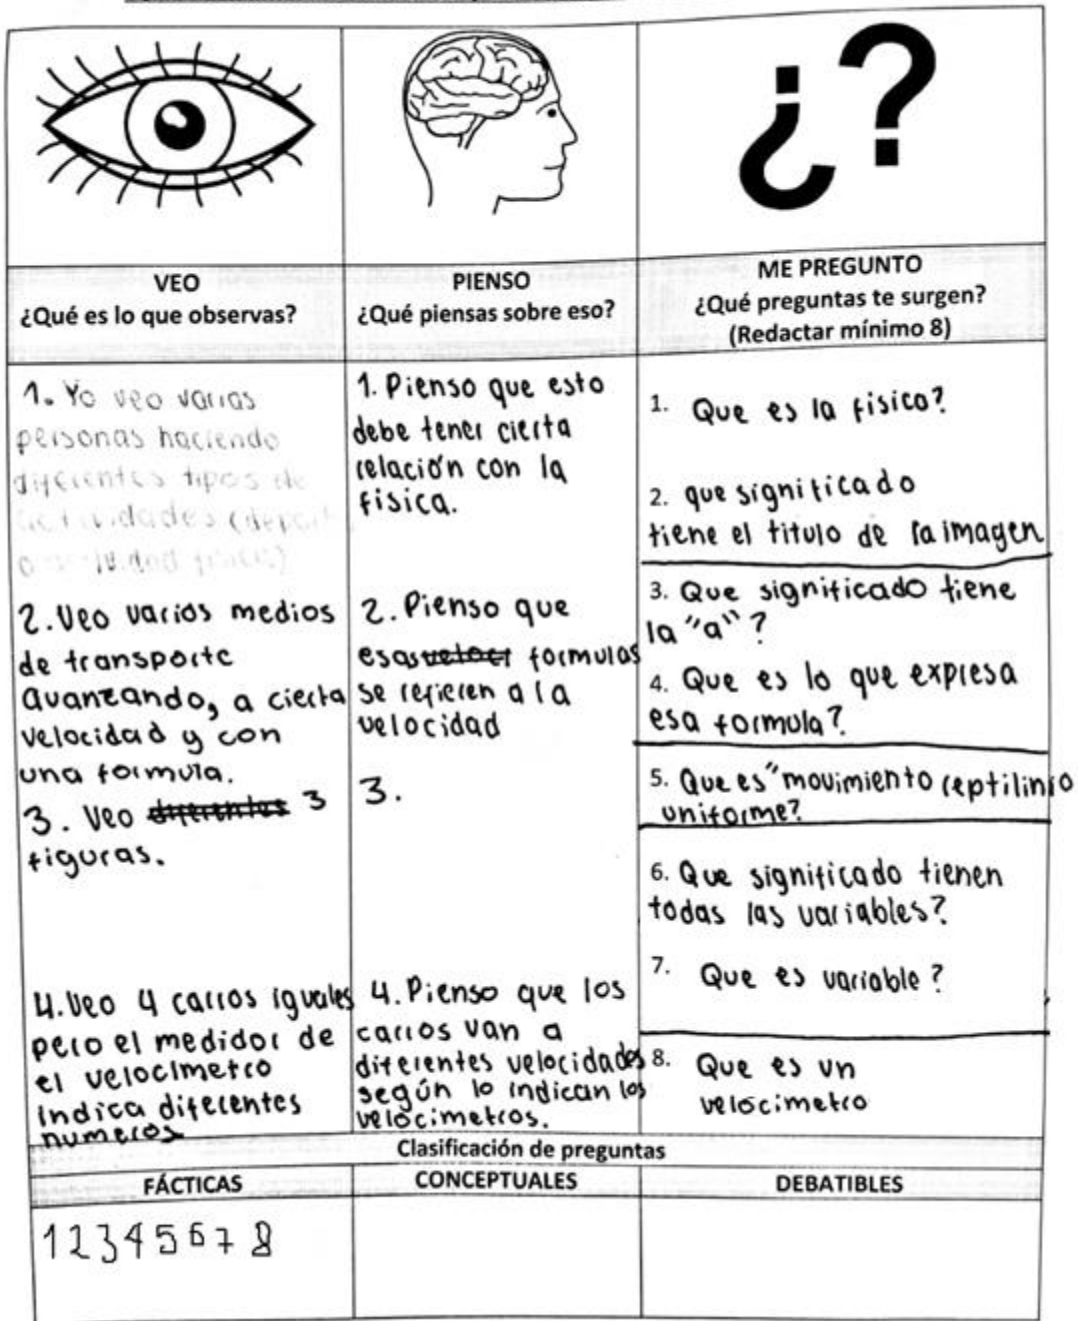 ¿?
VEO
¿Qué es lo que observas?
PIENSO
¿Qué piensas sobre eso?
ME PREGUNTO
¿Qué preguntas te surgen?
(Redactar mínimo 8)
1. Yo veo varias
personas haciendo
diferentes tipos de
2. Veo varios medios
de transporte
avanzando, a cierta
velocidad y con
una formula.
3. Veo diferentes 3
figuras.
4. Veo 4 carros iguales
pero el medidor de
el velocimetro
indica diferentes
numeros
1. Pienso que esto
debe tener cierta
relación con la
fisica.
2. Pienso que
esas formulas
se refieren a la
velocidad
3.
4. Pienso que los
carros van a
diferentes velocidades
según lo indican los
velocimetros.
1. Que es la fisica?
2. que significado
tiene el titulo de la imagen
3. Que significado tiene
la "a"?
4. Que es lo que expresa
esa formula?
5. Que es "movimiento reptilinio
uniforme?
6. Que significado tienen
todas las variables?
7. Que es variable?
8. Que es un
velocimetro
Clasificación de preguntas
FÁCTICAS
CONCEPTUALES
DEBATIBLES
1 2 3 4 5 6 7 8